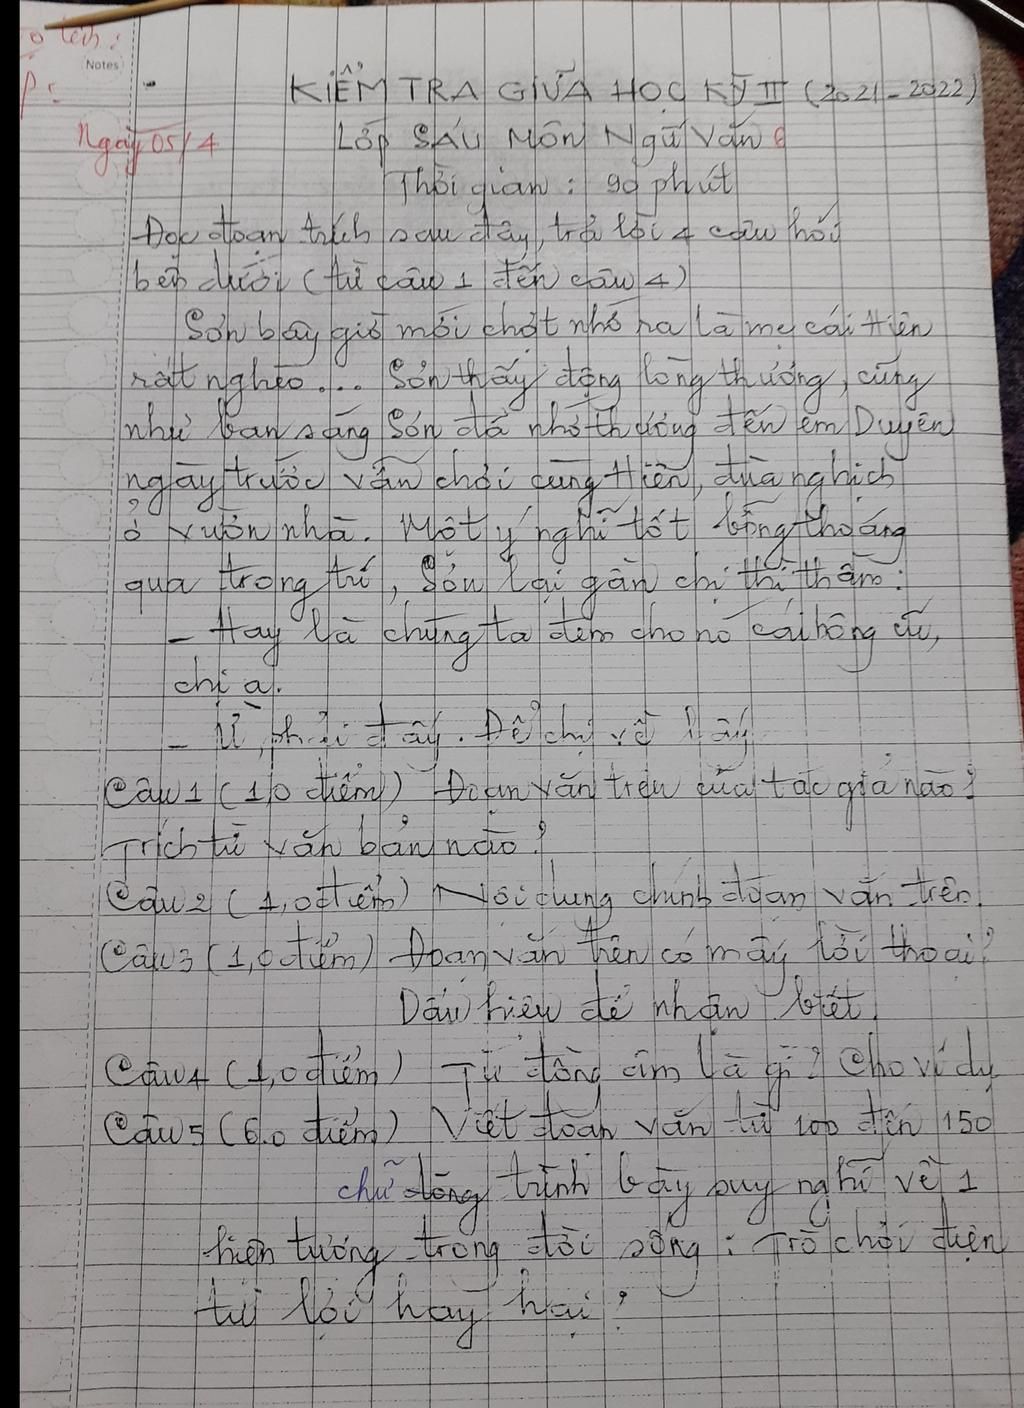 ọ tên:
Notes
Ngày 05/4
KIỂM TRA GIỮA HỌC KỲ II (2021-2022)
Lớp SÁU Môn Ngữ Văn 6
Thời gian: 90 phút
Đọc đoạn trích sau đây, trả lời 4 câu hỏi
bên dưới (từ câu 1 đến câu 4)
Sơn bây giờ mới chợt nhớ ra là mẹ cái Hiên
rất nghèo... Sơn thấy động lòng thương, cũng
như ban sáng Sơn đã nhớ thương đến em Duyên
ngày trước vẫn chơi cùng Hiên, đùa nghịch
ở vườn nhà. Một ý nghĩ tốt bỗng thoáng
qua trong trí, Sơn lại gần chị thì thầm:
- Hay là chúng ta đem cho nó cái bông cũ,
chị ạ.
- Ừ, phải đấy. Để chị về lấy
Câu 1 (1,0 điểm) Đoạn văn trên của tác giả nào?
Trích từ văn bản nào?
Câu 2 (1,0 điểm) Nội dung chính đoạn văn trên.
Câu 3 (1,0 điểm) Đoạn văn trên có mấy lời thoại?
Dấu hiệu để nhận biết.
Câu 4 (1,0 điểm) Từ đồng âm là gì? Cho ví dụ
Câu 5 (6.0 điểm) Viết đoạn văn từ 100 đến 150
chữ dòng trình bày suy nghĩ về 1
hiện tượng trong đời sống: Trò chơi điện
tử lợi hay hại?